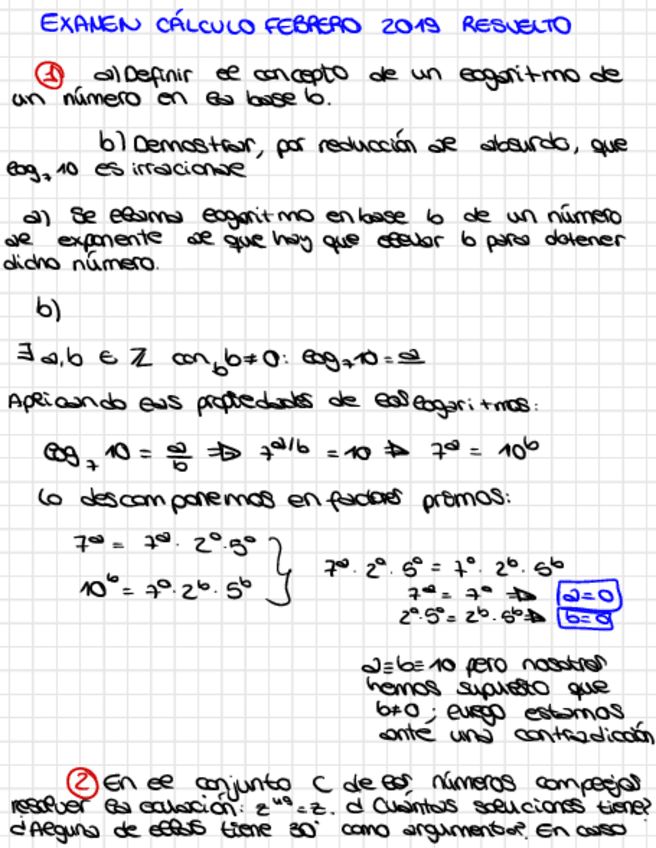 EXAMEN CÁLCULO FEBRERO 2019 RESUELTO
① a) Definir el concepto de un logaritmo de
un número en la base b.
b) Demostrar, por reducción al absurdo, que
log₇ 10 es irracional
a) Se llama logaritmo en base b de un número
al exponente al que hay que elevar b para obtener
dicho número.
b)
∃ a,b ∈ ℤ con b≠0: log₇10 = a/b
Aplicando las propiedades de los logaritmos:
log₇ 10 = a/b ⇒ 7^(a/b) = 10 ⇒ 7^a = 10^b
Lo descomponemos en factores primos:
7^a = 7^a · 2^0 · 5^0
10^b = 7^0 · 2^b · 5^b
7^a · 2^0 · 5^0 = 7^0 · 2^b · 5^b
7^a = 7^0 ⇒ a=0
2^0 · 5^0 = 2^b · 5^b ⇒ b=0
a=b=10 pero nosotros
hemos supuesto que
b≠0; luego estamos
ante una contradicción
② En el conjunto C de los números complejos
resolver la ecuación: z^49 = z. ¿Cuántas soluciones tiene?
¿Alguna de ellas tiene 30° como argumento? En caso